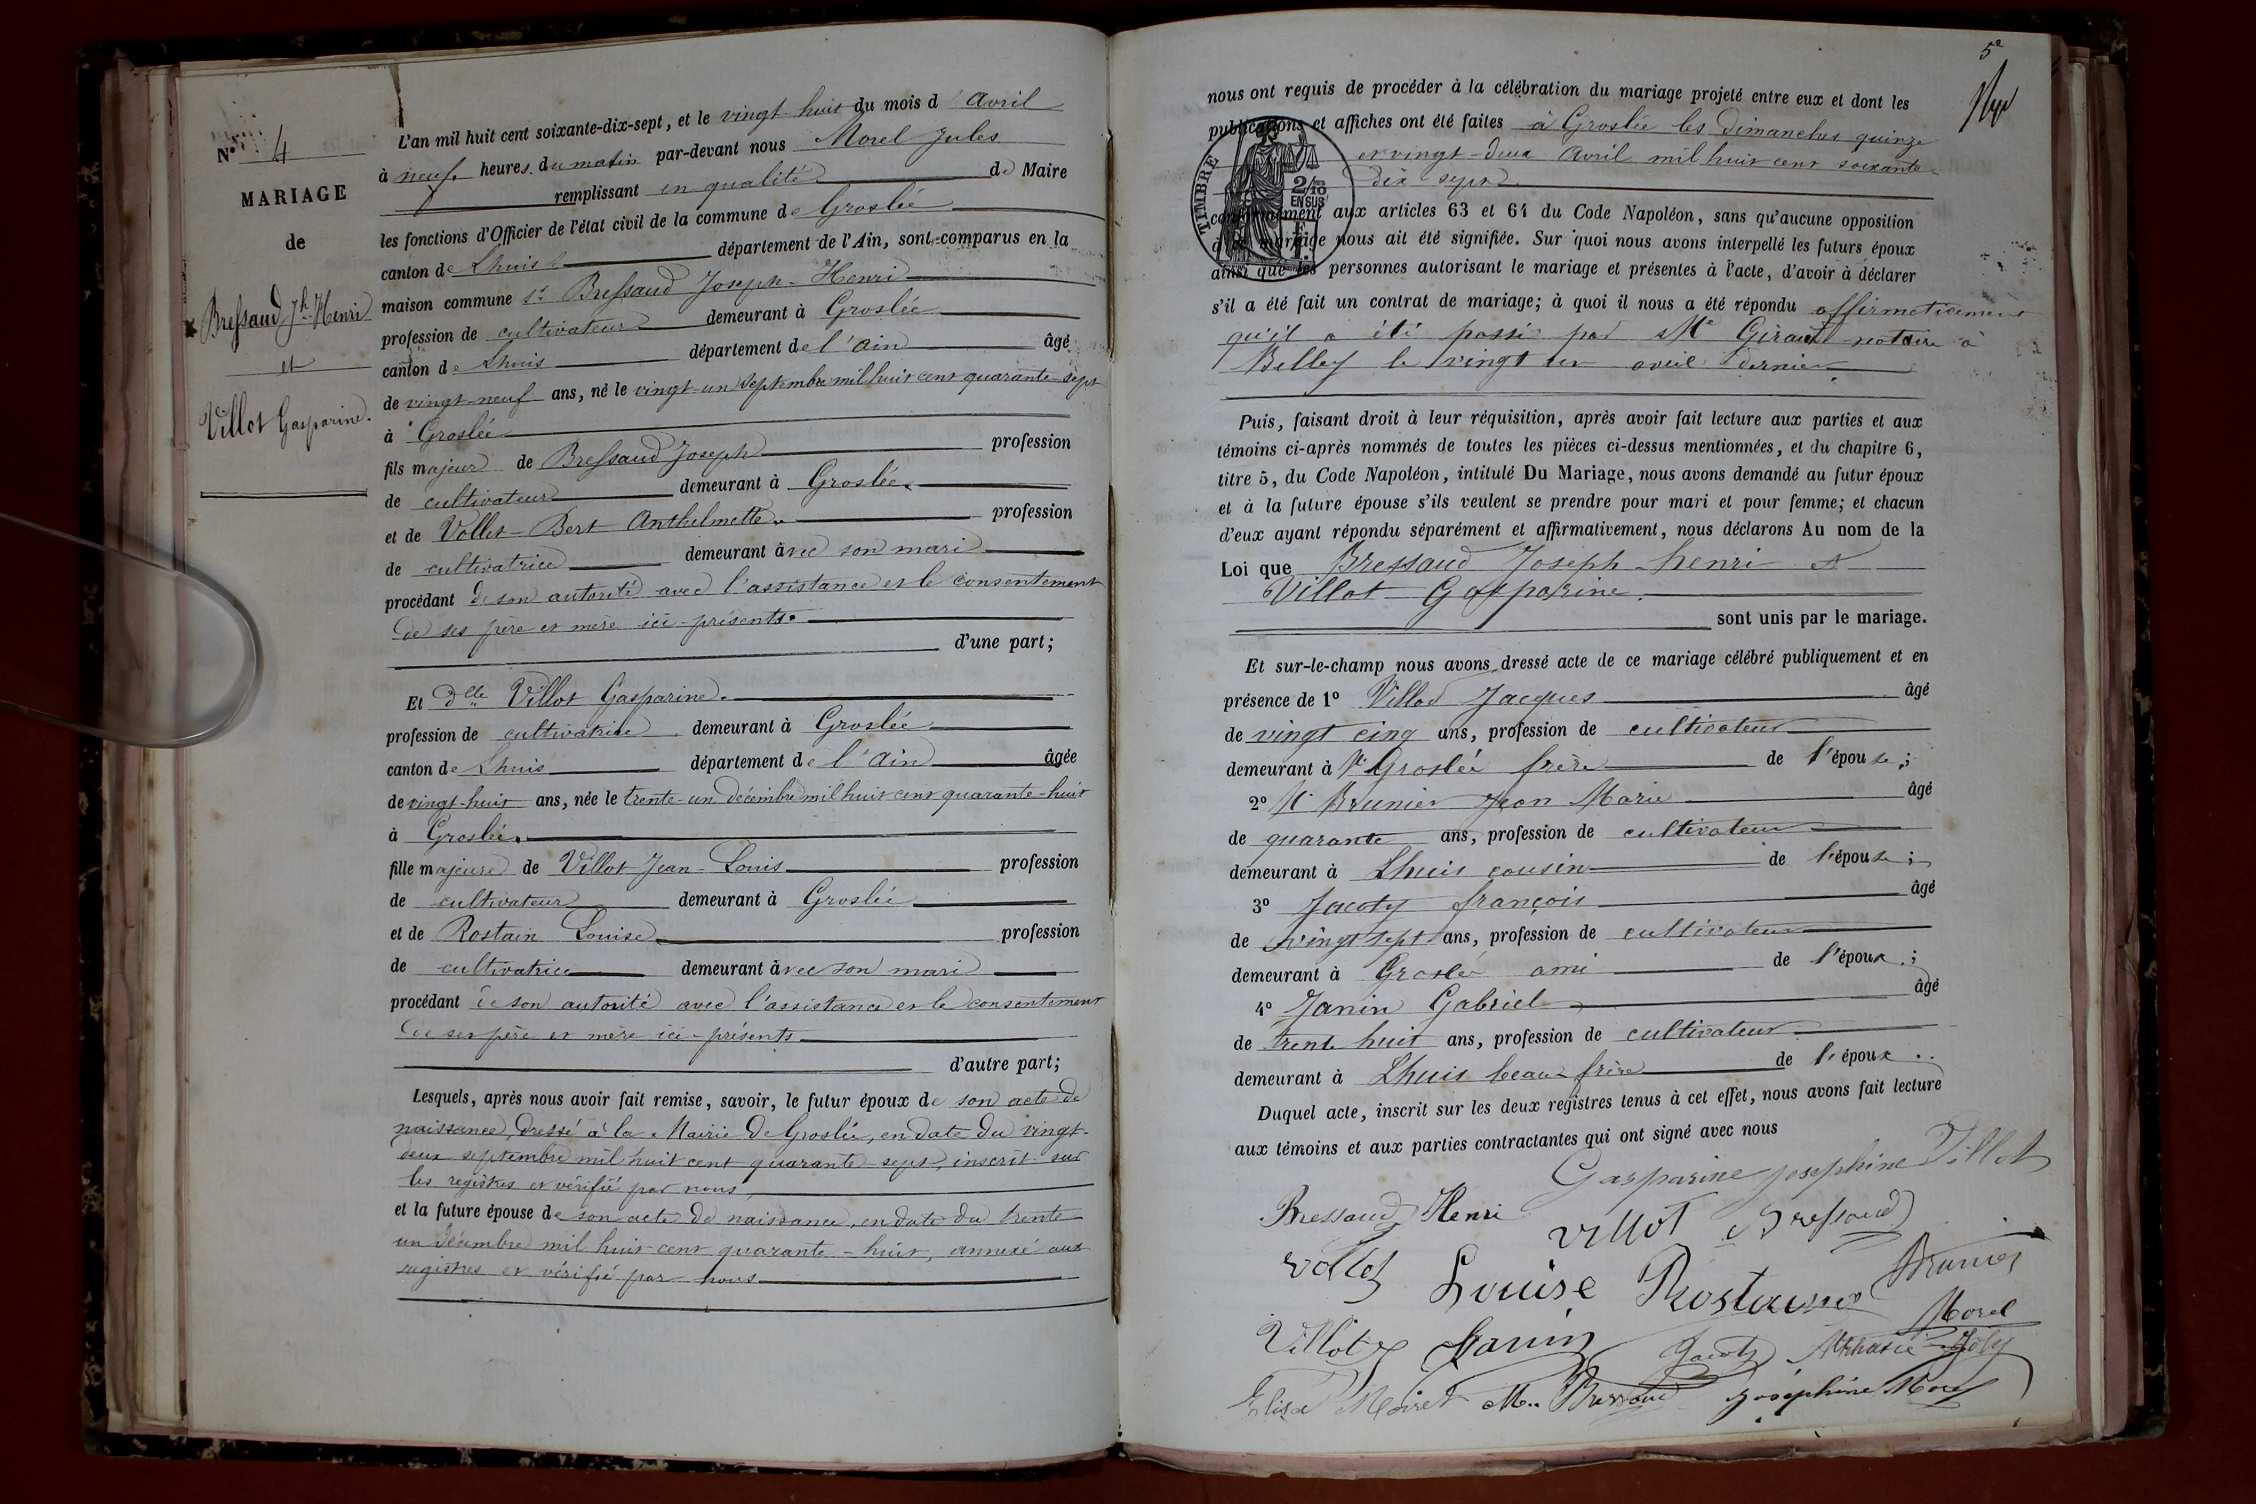 N° 4
MARIAGE
de
Bressaud Jh Henri
et
Villot Gasparine.
L'an mil huit cent soixante-dix-sept, et le vingt-huit du mois d'Avril
à neuf heures du matin par-devant nous Morel Jules
remplissant en qualité de Maire
les fonctions d'Officier de l'état civil de la commune de Groslée
canton de Lhuis département de l'Ain, sont comparus en la
maison commune sr Bressaud Joseph-Henri
profession de cultivateur demeurant à Groslée
canton de Lhuis département de l'Ain âgé
de vingt-neuf ans, né le vingt-un septembre mil huit cent quarante-sept
à Groslée
fils majeur de Bressaud Joseph profession
de cultivateur demeurant à Groslée.
et de Vollet-Bert Anthelmette. profession
de cultivatrice demeurant avec son mari
procédant de son autorité avec l'assistance et le consentement
de ses père et mère ici-présents.
d'une part;
Et dlle Villot Gasparine.
profession de cultivatrice demeurant à Groslée
canton de Lhuis département de l'Ain âgée
de vingt-huit ans, née le trente-un décembre mil huit cent quarante-huit
à Groslée.
fille majeure de Villot Jean-Louis profession
de cultivateur demeurant à Groslée
et de Rostain Louise profession
de cultivatrice demeurant avec son mari
procédant de son autorité avec l'assistance et le consentement
de ses père et mère ici-présents
d'autre part;
Lesquels, après nous avoir fait remise, savoir, le futur époux de son acte de
naissance, dressé à la Mairie de Groslée, en date du vingt-
deux septembre mil huit cent quarante-sept, inscrit sur
les registres et vérifié par nous,
et la future épouse de son acte de naissance, en date du trente
un décembre mil huit cent quarante-huit, annexé aux
registres et vérifié par nous
5e
nous ont requis de procéder à la célébration du mariage projeté entre eux et dont les
publications et affiches ont été faites à Groslée les dimanches quinze
et vingt-deux Avril mil huit cent soixante-
dix sept
TIMBRE
2/10
EN SUS
conformément aux articles 63 et 64 du Code Napoléon, sans qu'aucune opposition
à ce mariage nous ait été signifiée. Sur quoi nous avons interpellé les futurs époux
ainsi que les personnes autorisant le mariage et présentes à l'acte, d'avoir à déclarer
s'il a été fait un contrat de mariage; à quoi il nous a été répondu affirmativement
qu'il a été passé par Me Giraud notaire à
Belley le vingt un avril dernier
Puis, faisant droit à leur réquisition, après avoir fait lecture aux parties et aux
témoins ci-après nommés de toutes les pièces ci-dessus mentionnées, et du chapitre 6,
titre 5, du Code Napoléon, intitulé Du Mariage, nous avons demandé au futur époux
et à la future épouse s'ils veulent se prendre pour mari et pour femme; et chacun
d'eux ayant répondu séparément et affirmativement, nous déclarons Au nom de la
Loi que Bressaud Joseph henri et
Villot Gasparine.
sont unis par le mariage.
Et sur-le-champ nous avons dressé acte de ce mariage célébré publiquement et en
présence de 1° Villot Jacques âgé
de vingt cinq ans, profession de cultivateur
demeurant à Groslée frère de l'épouse;
2° Brunier Jean Marie âgé
de quarante ans, profession de cultivateur
demeurant à Lhuis cousin de l'épouse;
3° Jacoty françois âgé
de vingt sept ans, profession de cultivateur
demeurant à Groslée ami de l'époux;
4° Janin Gabriel âgé
de trente huit ans, profession de cultivateur
demeurant à Lhuis beau-frère de l'époux.
Duquel acte, inscrit sur les deux registres tenus à cet effet, nous avons fait lecture
aux témoins et aux parties contractantes qui ont signé avec nous
Gasparine josephine Villot
Bressaud Henri
villot Bressaud
vollet Louise Rostaing Brunier
Morel
Villot Janin Jacoty Athanasie Joly
Elise Moiret M. Bressaud Joséphine Morel